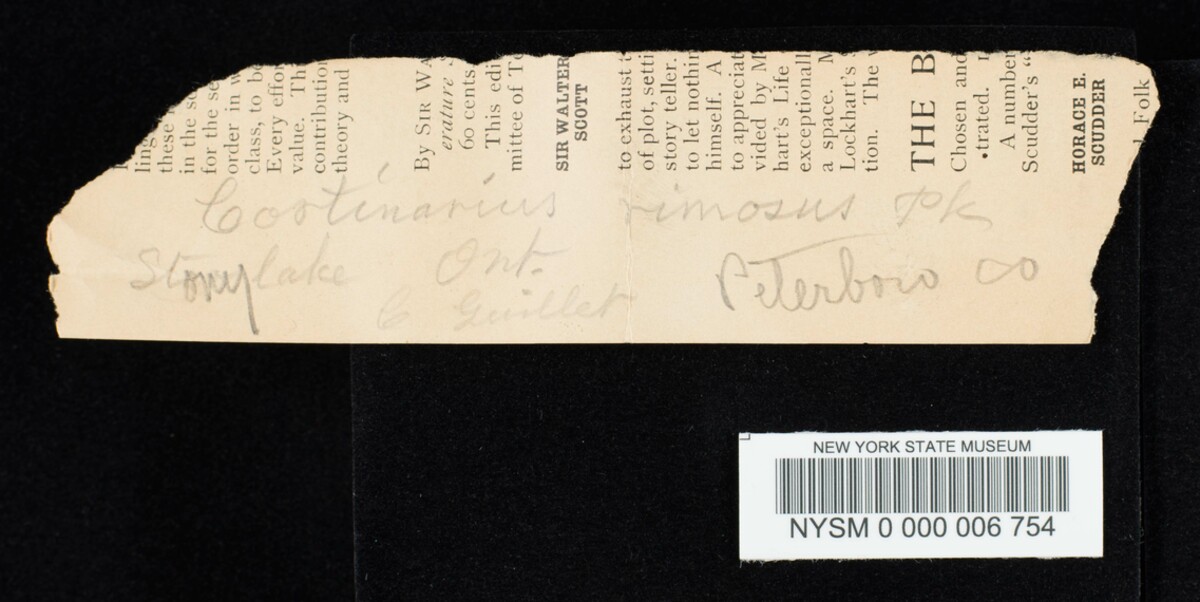 ling
these
in the sc
for the se
order in w
class, to be
Every effor
value. Th
contribution
theory and
By SIR WA
erature S
60 cents
This edi
mittee of Te
SIR WALTER
SCOTT
to exhaust i
of plot, setti
story teller.
to let nothin
himself. A
to appreciat
vided by M
hart's Life
exceptionall
a space. M
Lockhart's
tion. The
THE B
Chosen and
trated. I
A number
Scudder's "
HORACE E.
SCUDDER
Folk
Cortinarius rimosus Pk
Stony lake Ont. Peterboro Co
C Guillet
NEW YORK STATE MUSEUM
NYSM 0 000 006 754